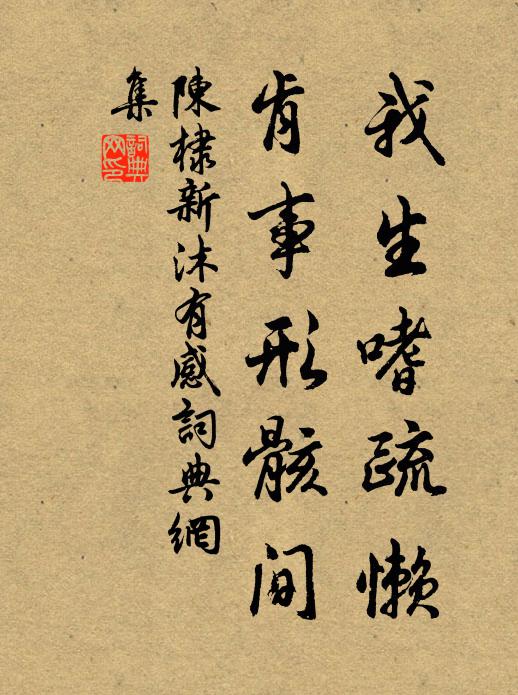 我生嗜疏懒
肯事形骸间
陳棣新沐有感詞典網
集
詞典
网印